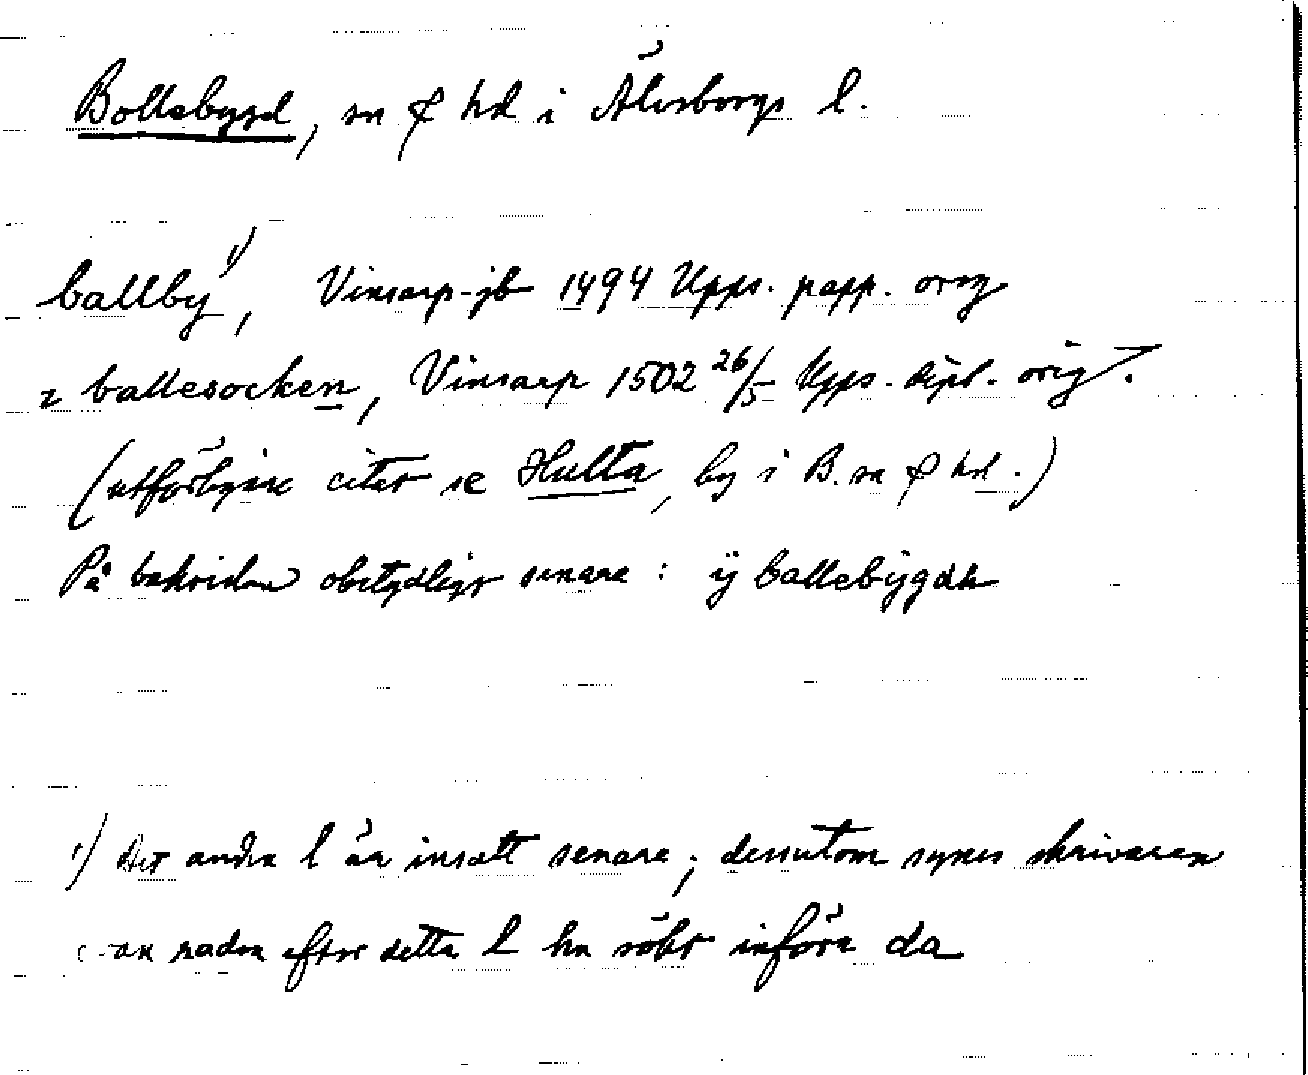 Bollebygd, sn & hd i Älvsborgs l.
ballby 1), Vinsarp-jb 1494 Upps. papp. orig
z ballesocken, Vinsarp 1502 26/5 Upps. dipl. orig.
(utförligare citat se Hulta, by i B. sn & hd.)
På baksidan obetydligt senare: ÿ ballebÿgdh
1) Det andra l är insatt senare; dessutom synes skrivaren
ovan raden efter detta l ha sökt införa da